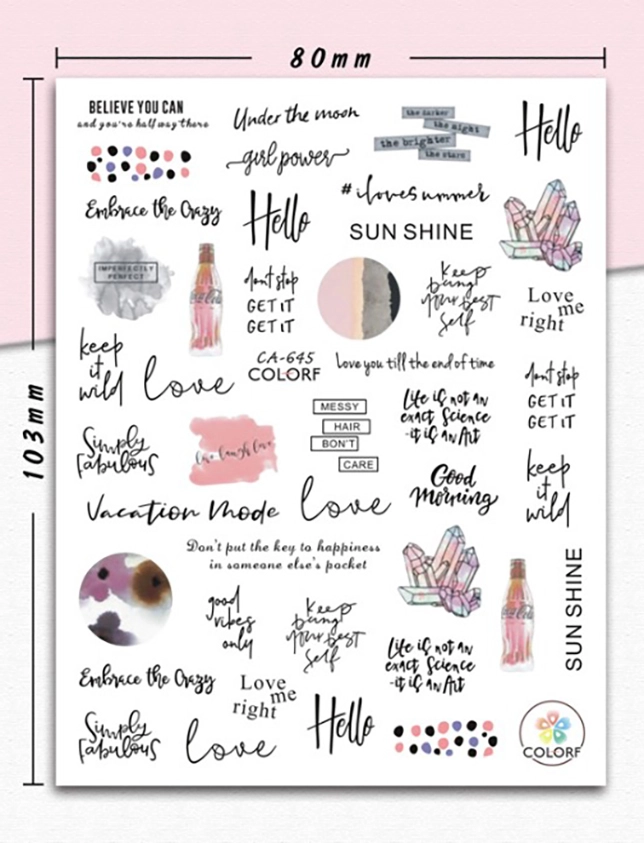 80mm
103mm
BELIEVE YOU CAN
and you're half way there
Under the moon
girl power
the darker
the night
the brighter
the stars
Hello
Embrace the Crazy
Hello
#ilovesummer
SUN SHINE
IMPERFECTLY
PERFECT
Coca-Cola
dont stop
GET IT
GET IT
Keep
being
your best
self
Love
me
right
keep
it
wild
love
CA-645
COLORF
Love you till the end of time
Life is not an
exact Science
-it is an Art
dont stop
GET IT
GET IT
Simply
fabulous
live laugh love
MESSY
HAIR
BON'T
CARE
Good
Morning
keep
it
wild
Vacation Mode
love
Don't put the key to happiness
in someone else's pocket
good
vibes
only
Keep
being
your best
self
Coca-Cola
SUN SHINE
Life is not an
exact Science
-it is an Art
Embrace the Crazy
Love
me
right
Hello
Simply
fabulous
love
COLORF